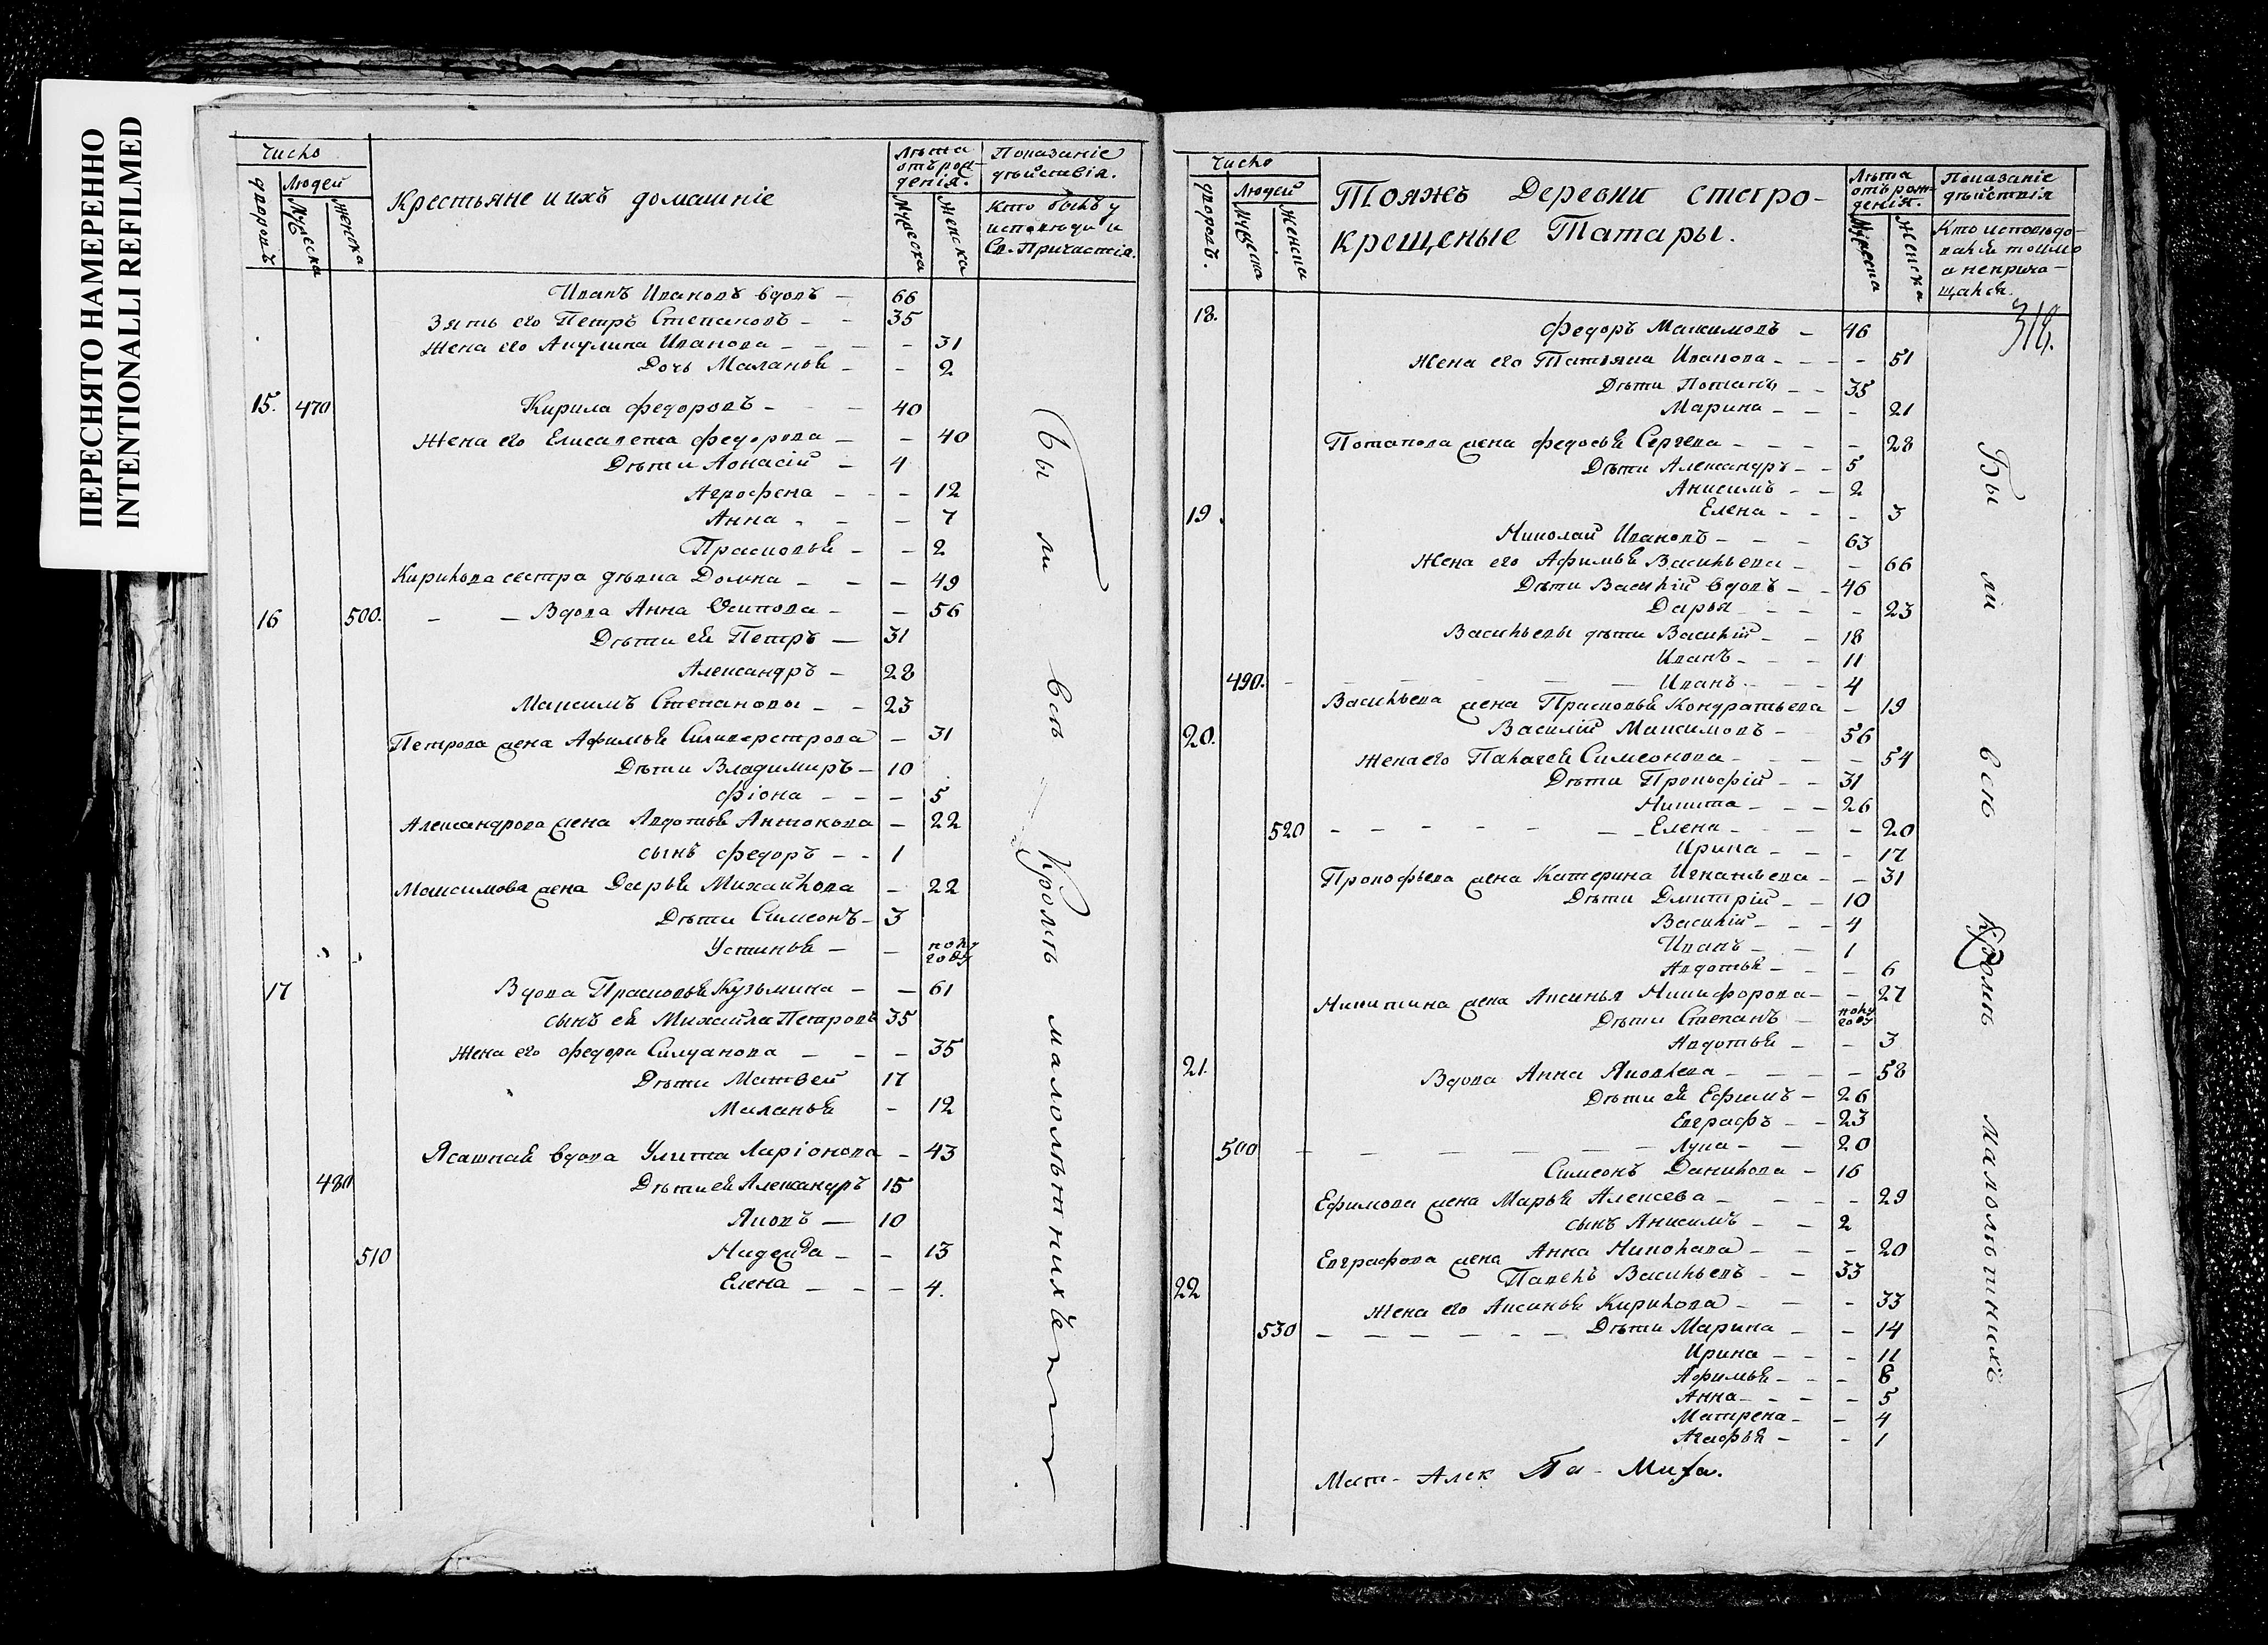 ПЕРЕСНЯТО НАМЕРЕННО
INTENTIONALLI REFILMED
Число
Людей
дворовъ
Мужеска
Женска
Крестьяне и ихъ домашніе
Лѣта отъ рож-
денія.
Мужеска
Женска
Показаніе
дѣйствія.
Кто былъ у
исповѣди и
Св. Причастія.
Иванъ Ивановъ вдовъ – 66
Зять его Петръ Степановъ – – 35
Жена его Акулина Иванова – – – – 31
Дочь Маланья – – 2
15. 470 Кирила Федоровъ – – – 40
Жена его Елисавета Федорова – – 40
Дѣти Афонасій – 4
Агрофена – – – 12
Анна – – – 7
Прасковья – – 2
Кирилова сестра дѣвка Домна – – – 49
16 500. – – Вдова Анна Осипова – – 56
Дѣти ея Петръ – 31
Александръ – 28
Максимъ Степановы – – 23
Петрова жена Афимья Сильверстрова – 31
Дѣти Владимиръ – 10
Фіона – – – 5
Александрова жена Авдотья Антонова – 22
сынъ Федоръ – – 1
Максимова жена Дарья Михайлова – 22
Дѣти Симеонъ – 3
Устинья – – полу
году
17 Вдова Прасковья Кузьмина – – 61
сынъ ея Михайла Петровъ 35
Жена его Федора Силуанова – – – 35
Дѣти Матвей 17
Маланья – 12
Ясашная вдова Улита Ларіонова – 43
480 Дѣти ея Александръ 15
Яковъ – 10
510 Надежда – – 13
Елена – – – 4.
Были всѣ Кромѣ малолѣтнихъ
Число
Людей
дворовъ.
Мужеска
Женска
Тояжъ Деревни старо-
крещеные Татары.
Лѣта
отъ рож-
денія.
Мужеска
Женска
Показаніе
дѣйствія
Кто исповѣдо-
вался токмо
а неприча-
щался.
318.
18. Федоръ Максимовъ – 46
Жена его Татьяна Иванова – – – – 51
Дѣти Потапъ – – 35
Марина – – – 21
Потапова жена Федосья Сергева – – – – 28
Дѣти Александръ – – 5
Анисимъ – – 2
Елена – – – 3
19. Николай Ивановъ – – – 63
Жена его Афимья Васильева – – 66
Дѣти Василій вдовъ – – 46
Дарья – – – 23
Васильевы дѣти Василій – – 18
Иванъ – – – 11
490. – – – – – – Иванъ – – – 4
Васильева жена Прасковья Кондратьева – 19
20. Василій Максимовъ – 56
Жена его Палагея Симеонова – – – – 54
Дѣти Прокофій – – 31
Никита – – – 26
520 – – – – – – – Елена – – – – 20
Ирина – – – 17
Прокофьева жена Катерина Игнатьева – – 31
Дѣти Дмитрій – – 10
Василій – – – 4
Иванъ – – 1
Авдотья – – – 6
Никитина жена Аксинья Никифорова – – 27
Дѣти Степанъ – полу
году
Авдотья – – 3
21. Вдова Анна Яковлева – – – – 58
Дѣти ея Ефимъ – 26
Евграфъ – – 23
500 – – – – – – Лука – – 20
Симеонъ Данилова – 16
Ефимова жена Марья Алексева – – – – 29
сынъ Анисимъ – – 2
Евграфова жена Анна Николаева – – – 20
22 Павелъ Васильевъ – – 33
Жена его Аксинья Кирилова – – – 33
530 – – – – – – – Дѣти Марина – – 14
Ирина – – – 11
Афимья – – – 8
Анна – – – – 5
Матрена – – 4
Агафья – – 1
Были всѣ Кромѣ малолѣтнихъ